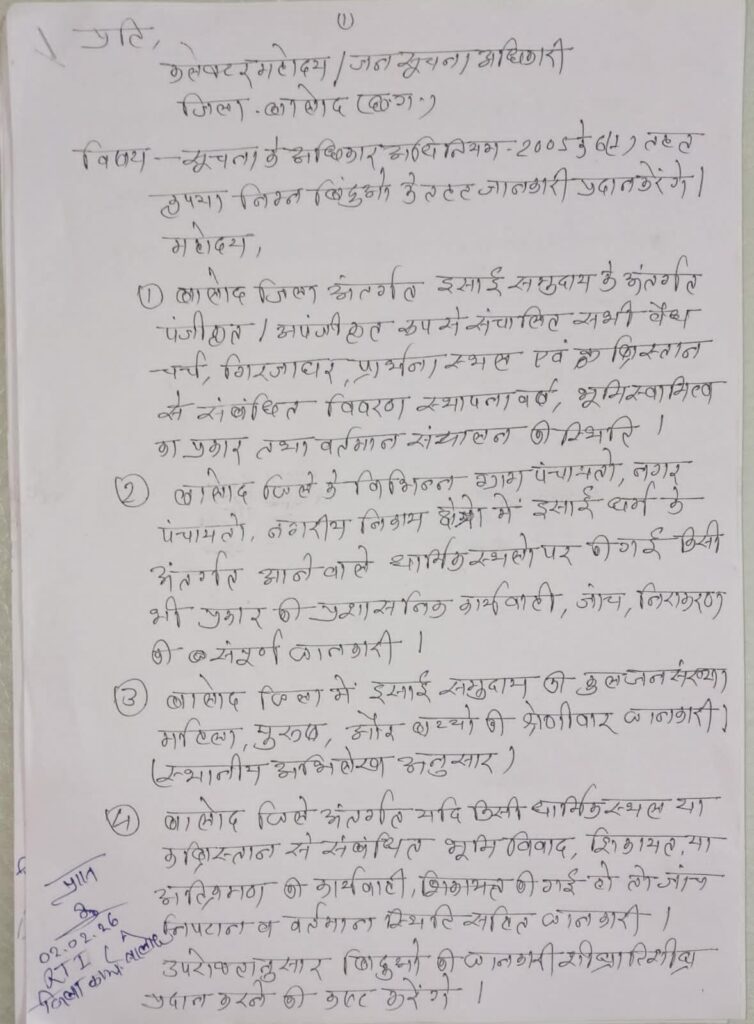 (1)
प्रति,
कलेक्टर महोदय / जन सूचना अधिकारी
जिला - बालोद (छ.ग.)
विषय - सूचना के अधिकार अधिनियम - 2005 के 6(1) तहत
कृपया निम्न बिंदुओं के तहत जानकारी प्रदान करेंगे।
महोदय,
① बालोद जिला अंतर्गत इसाई समुदाय के अंतर्गत
पंजीकृत / अपंजीकृत रूप से संचालित सभी वैध
चर्च, गिरजाघर, प्रार्थना स्थल एवं कब्रिस्तान
से संबंधित विवरण स्थापना वर्ष, भूमि स्वामित्व
का प्रकार तथा वर्तमान संचालन की स्थिति।
② बालोद जिले के विभिन्न ग्राम पंचायतो, नगर
पंचायतो, नगरीय निकाय क्षेत्रो में इसाई धर्म के
अंतर्गत आने वाले धार्मिक स्थलो पर की गई किसी
भी प्रकार की प्रशासनिक कार्यवाही, जांच, निराकरण
की संपूर्ण जानकारी।
③ बालोद जिला में इसाई समुदाय की कुल जनसंख्या
महिला, पुरुष, और बच्चो की श्रेणीवार जानकारी।
(स्थानीय अभिलेख अनुसार)
④ बालोद जिले अंतर्गत यदि किसी धार्मिक स्थल या
कब्रिस्तान से संबंधित भूमि विवाद, शिकायत, या
अतिक्रमण की कार्यवाही, शिकायत की गई हो तो जांच
निपटान व वर्तमान स्थिति सहित जानकारी।
उपरोक्तानुसार बिंदुओ की जानकारी शीघ्रातिशीघ्र
प्रदान करने की कष्ट करेंगे।
प्राप्त
02.02.26
RTI
जिला कार्या. बालोद